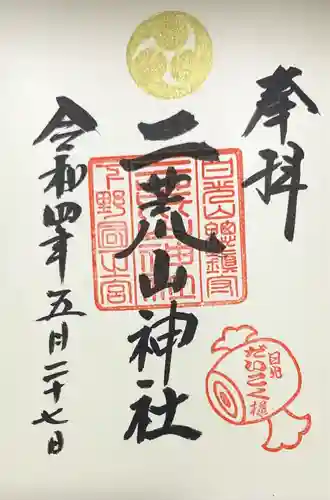 奉拝
日光山總鎮守
二荒山神社
二荒山神社
下野國一之宮
令和四年五月二十七日
日光
だいこく様